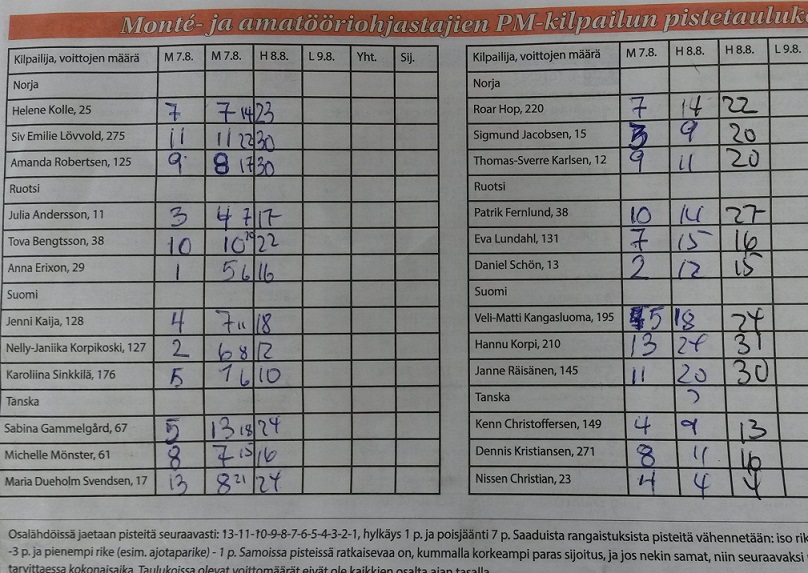 Monté- ja amatööriohjastajien PM-kilpailun pistetauluk
Kilpailija, voittojen määrä M 7.8. M 7.8. H 8.8. L 9.8. Yht. Sij.
Norja
Helene Kolle, 25 7 7 14 23
Siv Emilie Lövvold, 275 11 11 22 30
Amanda Robertsen, 125 9 8 17 30
Ruotsi
Julia Andersson, 11 3 4 7 17
Tova Bengtsson, 38 10 10 22
Anna Erixon, 29 1 5 6 16
Suomi
Jenni Kaija, 128 4 7 11 18
Nelly-Janiika Korpikoski, 127 2 6 8 12
Karoliina Sinkkilä, 176 5 1 6 10
Tanska
Sabina Gammelgård, 67 5 13 18 24
Michelle Mönster, 61 8 7 15 16
Maria Dueholm Svendsen, 17 13 8 21 24
Kilpailija, voittojen määrä M 7.8. H 8.8. H 8.8. L 9.8.
Norja
Roar Hop, 220 7 14 22
Sigmund Jacobsen, 15 3 9 20
Thomas-Sverre Karlsen, 12 9 11 20
Ruotsi
Patrik Fernlund, 38 10 14 27
Eva Lundahl, 131 7 15 16
Daniel Schön, 13 2 12 15
Suomi
Veli-Matti Kangasluoma, 195 5 18 24
Hannu Korpi, 210 13 24 31
Janne Räisänen, 145 11 20 30
Tanska
Kenn Christoffersen, 149 4 9 13
Dennis Kristiansen, 271 8 11 16
Nissen Christian, 23 4 4 4
Osalähdöissä jaetaan pisteitä seuraavasti: 13-11-10-9-8-7-6-5-4-3-2-1, hylkäys 1 p. ja poisjäänti 7 p. Saaduista rangaistuksista pisteitä vähennetään: iso rik
-3 p. ja pienempi rike (esim. ajotaparike) - 1 p. Samoissa pisteissä ratkaisevaa on, kummalla korkeampi paras sijoitus, ja jos nekin samat, niin seuraavaksi
tarvittaessa kokonaisaika. Taulukoissa olevat voittomäärät eivät ole kaikkien osalta ajan tasalla.